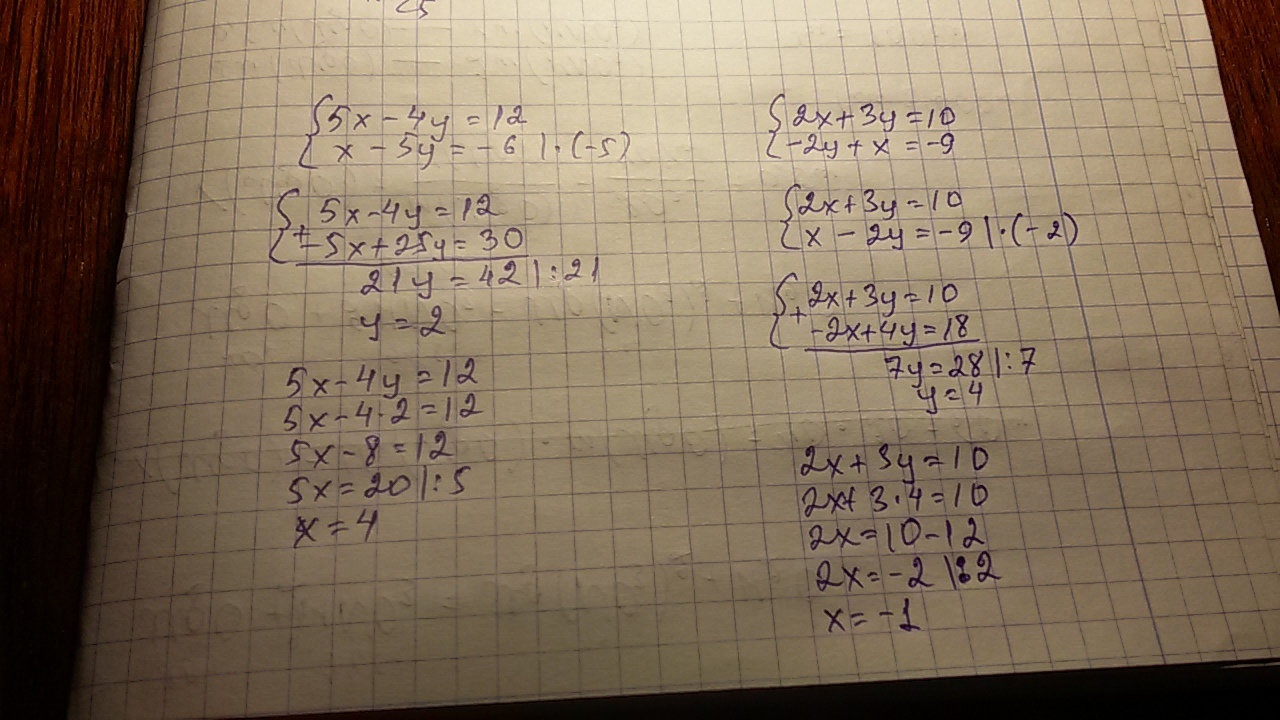 5x - 4y = 12
x - 5y = -6 | · (-5)
5x - 4y = 12
+ -5x + 25y = 30
21y = 42 | : 21
y = 2
5x - 4y = 12
5x - 4 · 2 = 12
5x - 8 = 12
5x = 20 | : 5
x = 4
2x + 3y = 10
-2y + x = -9
2x + 3y = 10
x - 2y = -9 | · (-2)
2x + 3y = 10
+ -2x + 4y = 18
7y = 28 | : 7
y = 4
2x + 3y = 10
2x + 3 · 4 = 10
2x = 10 - 12
2x = -2 | : 2
x = -1